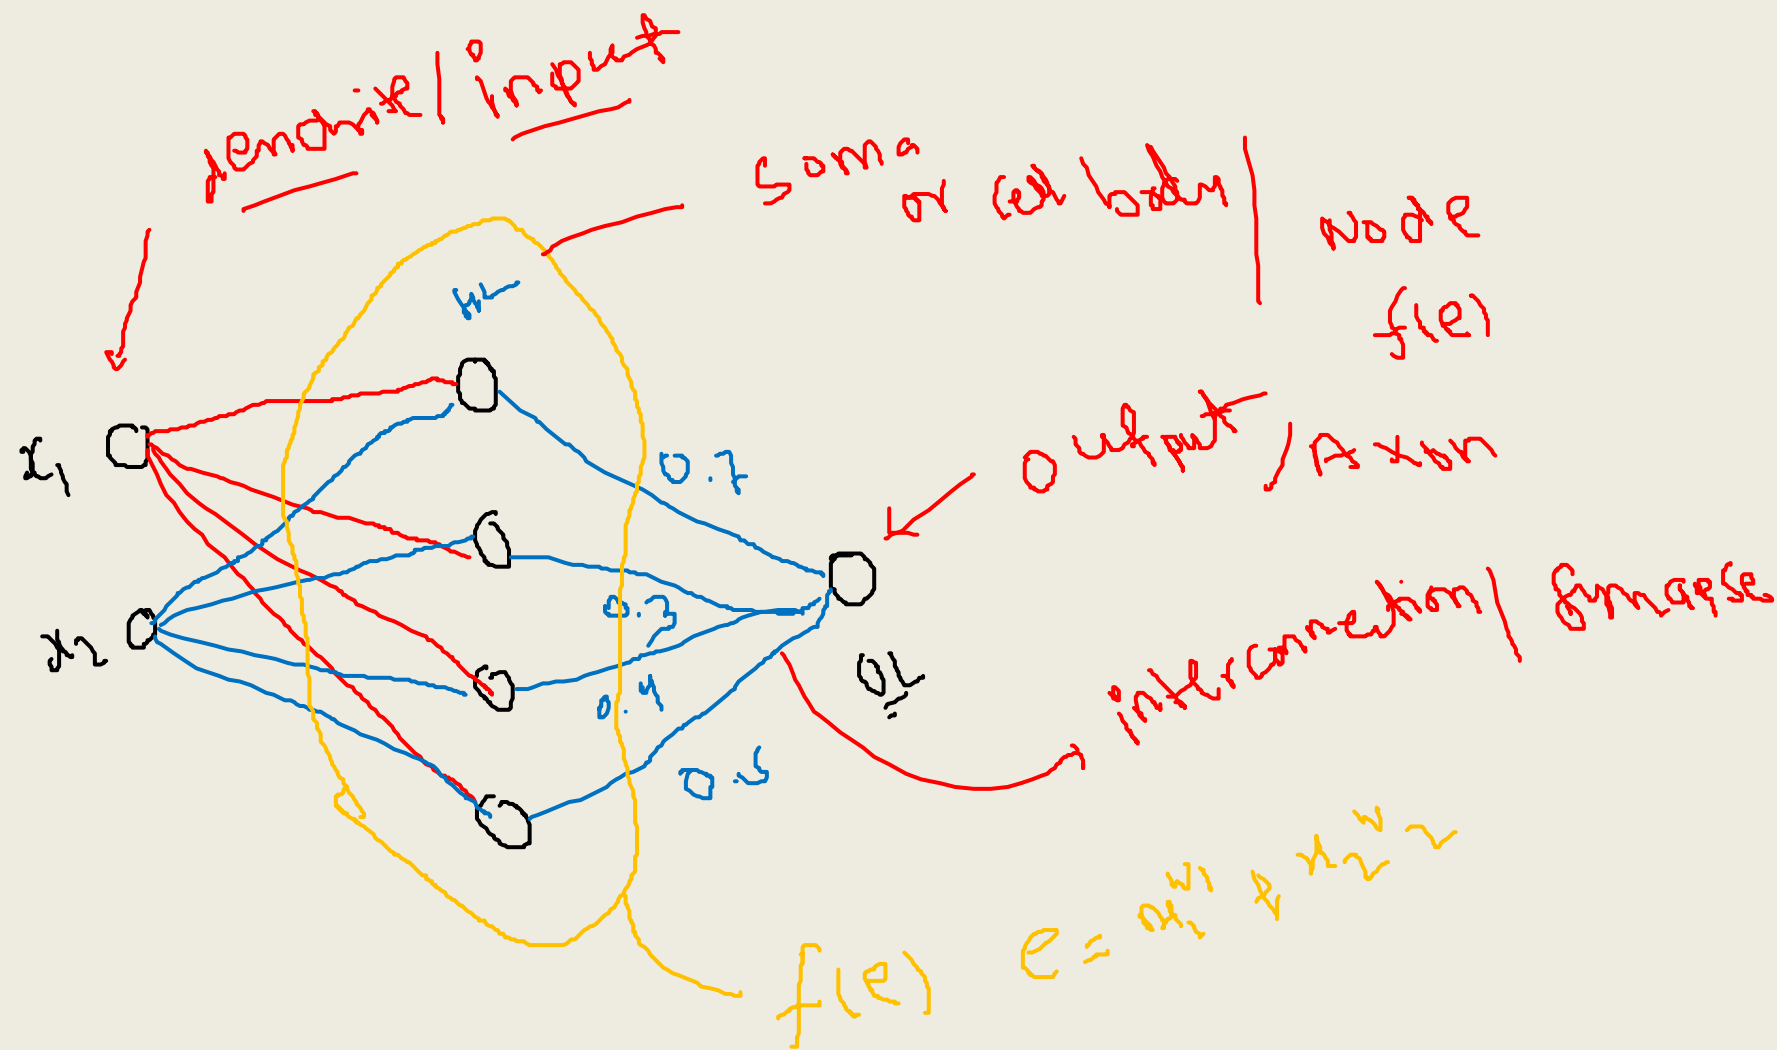 dendrite/input
soma
or cell body/
Node
f(e)
HL
x1
0.7
output/Axon
x2
0.3
0.4
OL
interconnection/synapse
0.5
e = x1w1 + x2w2
f(e)